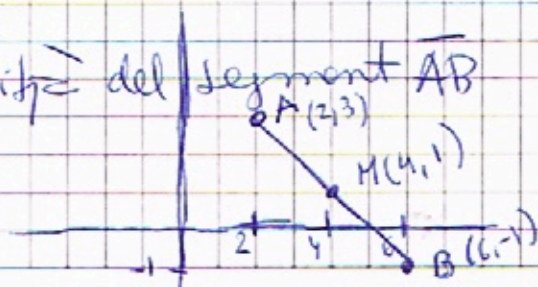 del segment AB
A (2,3)
M(4,1)
2 4 6
-1 B (6,-1)